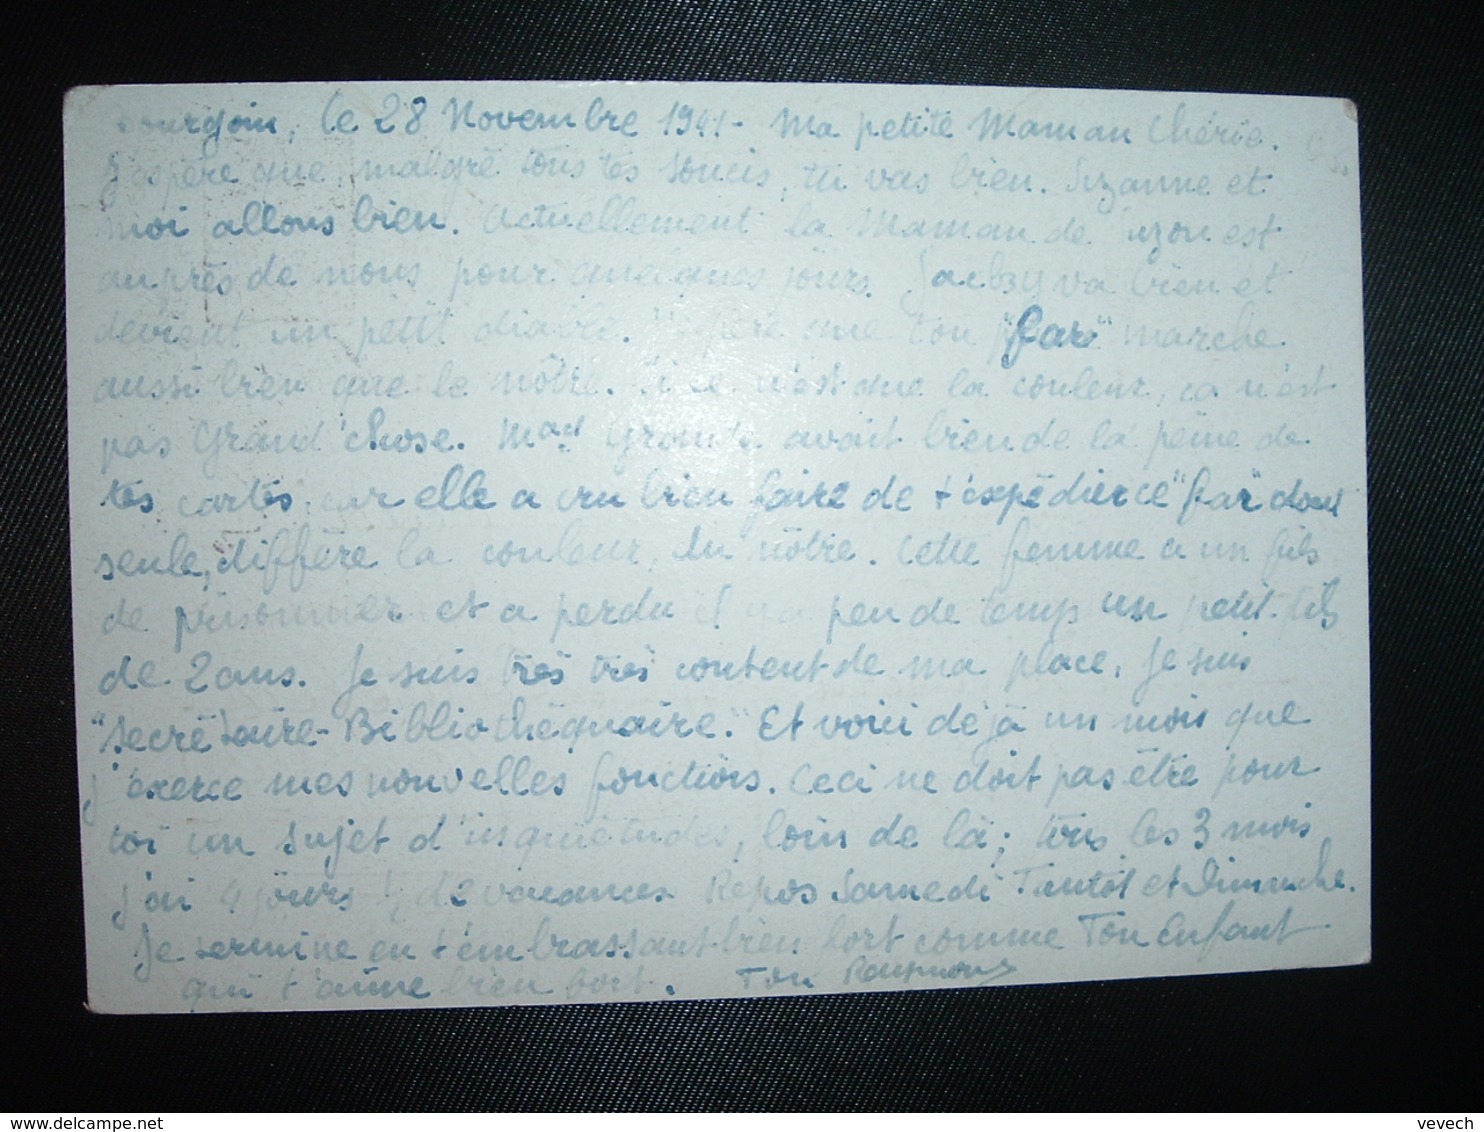 Bourgoin, le 28 Novembre 1941 - Ma petite Maman Chérie.
J'espère que, malgré tous tes soucis, tu vas bien. Suzanne et
moi allons bien. Actuellement la Maman de Suzon est
auprès de nous pour quelques jours. Jacky va bien et
devient un petit diable. J'espère que ton "far" marche
aussi bien que le nôtre. Si ce n'est que la couleur, ça n'est
pas Grand'chose. Mad avait bien de la peine de
tes cartes, car elle a cru bien faire de t'expédier ce "far" dont
seule, diffère la couleur, du nôtre. Cette femme a un fils
de prisonnier et a perdu il y a peu de temps un petit-fils
de 2 ans. Je suis très très content de ma place, je suis
"Secrétaire-Bibliothéquaire." Et voici déjà un mois que
j'exerce mes nouvelles fonctions. Ceci ne doit pas être pour
toi un sujet d'inquiétudes, loin de là; tous les 3 mois
j'ai 4 jours ½ de vacances. Repos Samedi Tantôt et Dimanche.
Je termine en t'embrassant bien fort comme Ton Enfant
qui t'aime bien fort. Ton Raymond
vevech